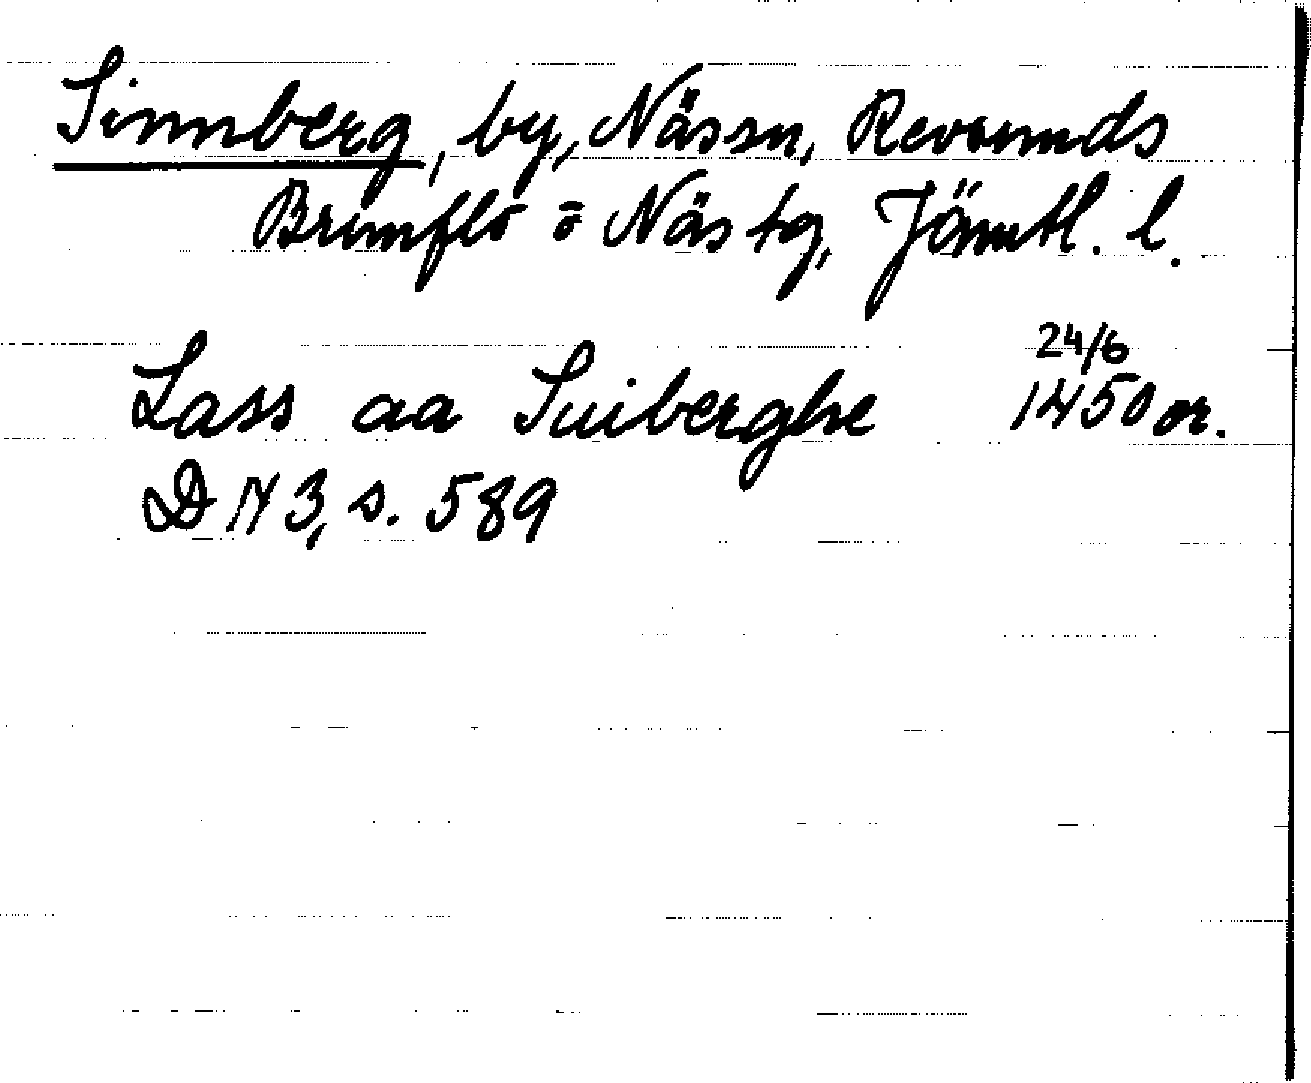 Sinnberg, by, Näs sn, Revsunds
Brunflo o Näs tg, Jämtl. l.
Lass aa Suiberghe 24/6 1450 or.
DN 3, s. 589